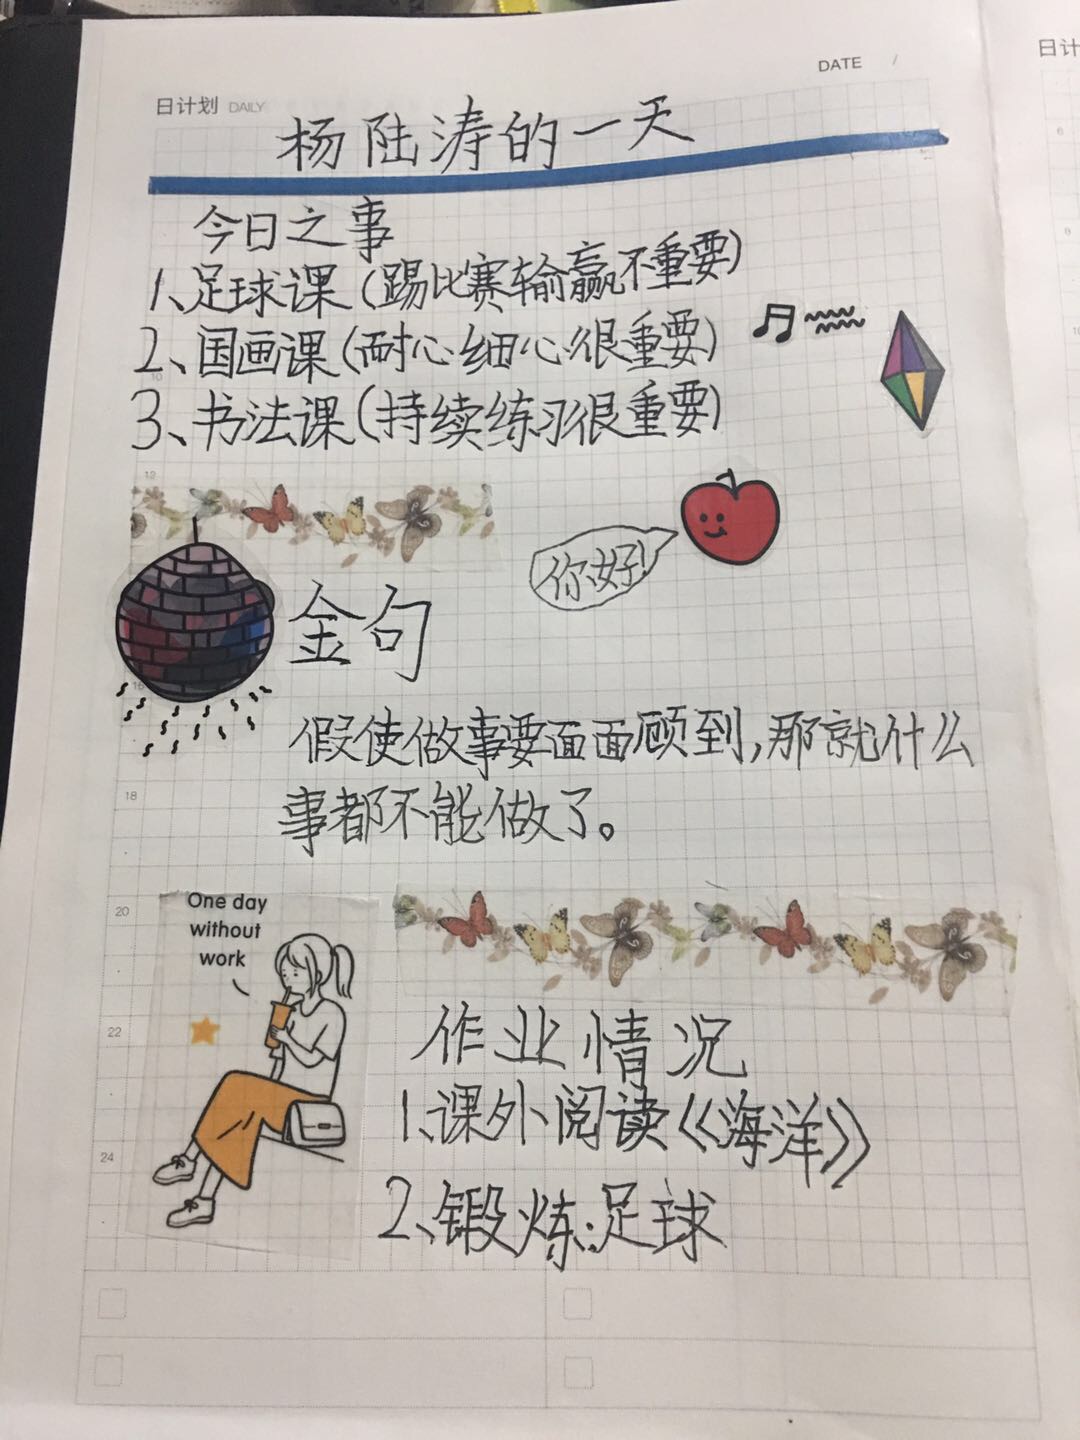 DATE /
日计划 DAILY
日计
杨陆涛的一天
今日之事
1、足球课(踢比赛输赢不重要)
2、国画课(耐心细心很重要)
3、书法课(持续练习很重要)
你好!
金句
假使做事要面面顾到,那就什么
事都不能做了。
18
20
One day
without
work
22
作业情况
1、课外阅读《海洋》
24
2、锻炼:足球